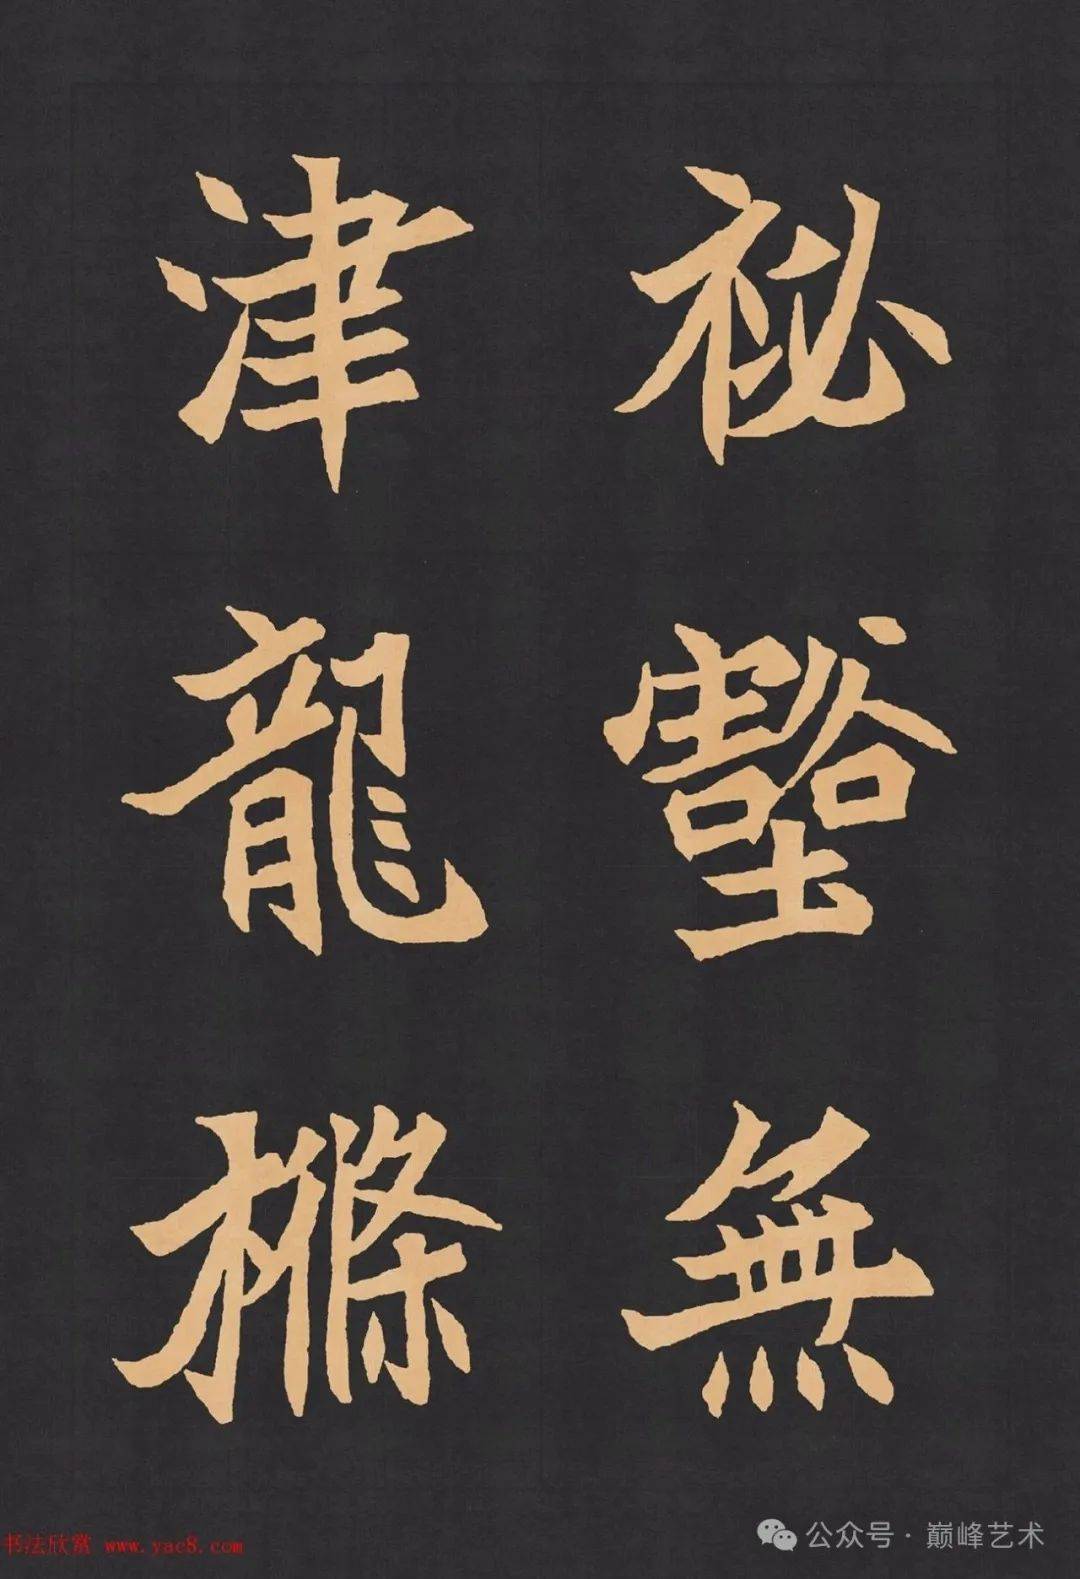 祕壑無
津龍樤
书法欣赏 www.yac8.com
公众号 · 巅峰艺术